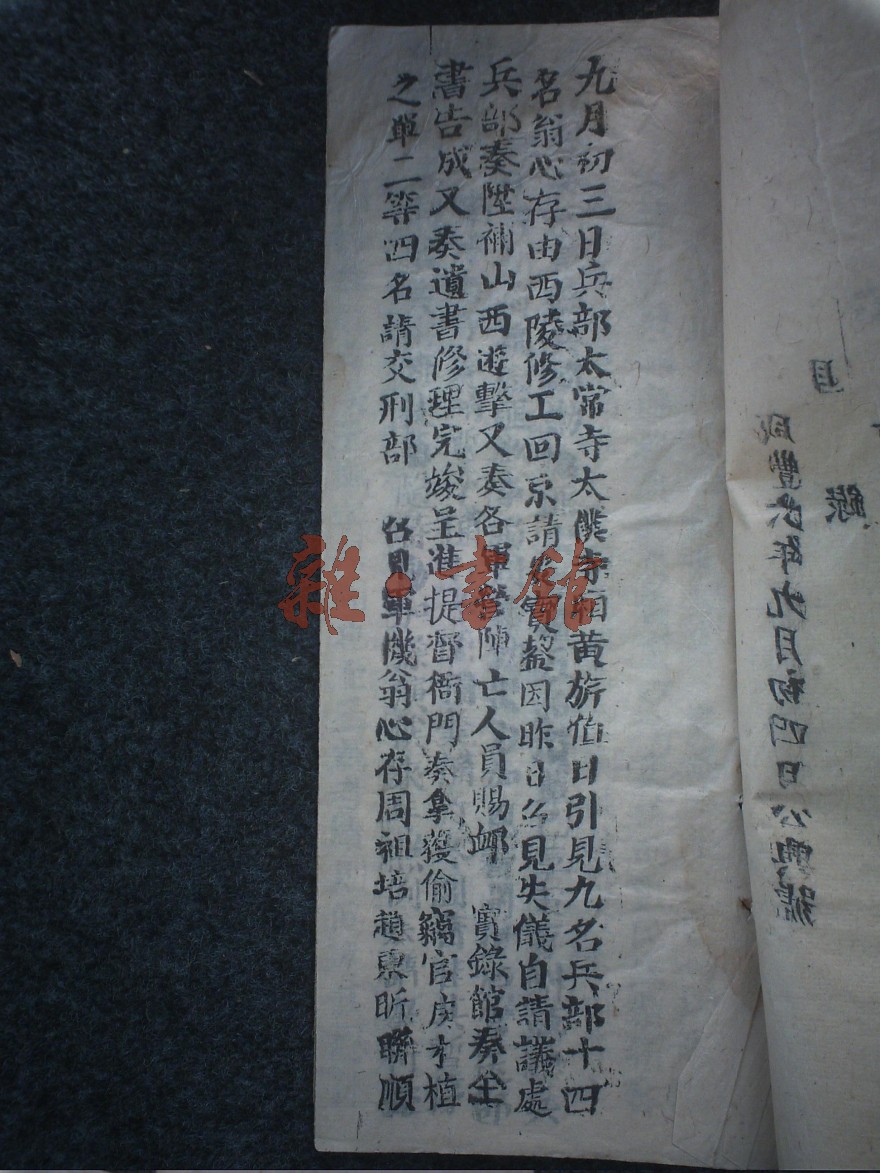 九月初三日兵部太常寺太僕寺廂黃旂值日引見九名兵部十四
名翁心存由西陵修工回京請安寶鋆因昨日召見失儀自請議處
兵部奏陞補山西遊擊又奏各軍營陣亡人員賜卹 實錄館奏全
書告成又奏遺書修理完竣呈進提督衙門奏拿獲偷竊官皮木植
之單二等四名請交刑部 召見軍機翁心存周祖培趙東昕聯順
月
錄
咸豐六年九月初四日公興號
雜·書館